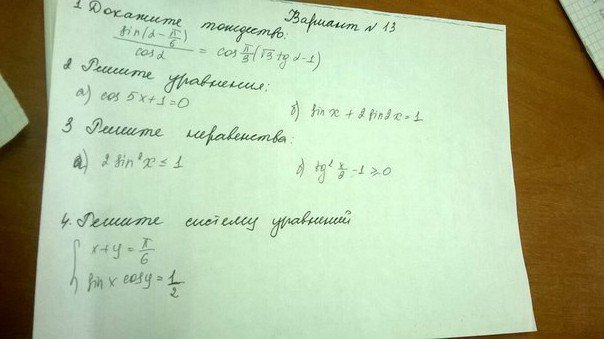 Вариант N 13
1 Докажите тождество:
sin(α - π/6) / cos α = cos π/3 (√3 tg α - 1)
2 Решите уравнения:
а) cos 5x + 1 = 0
б) sin x + 2 sin 2x = 1
3 Решите неравенства:
а) 2 sin² x ≤ 1
б) tg² x/2 - 1 ≥ 0
4. Решите систему уравнений
{ x + y = π/6
sin x cos y = 1/2